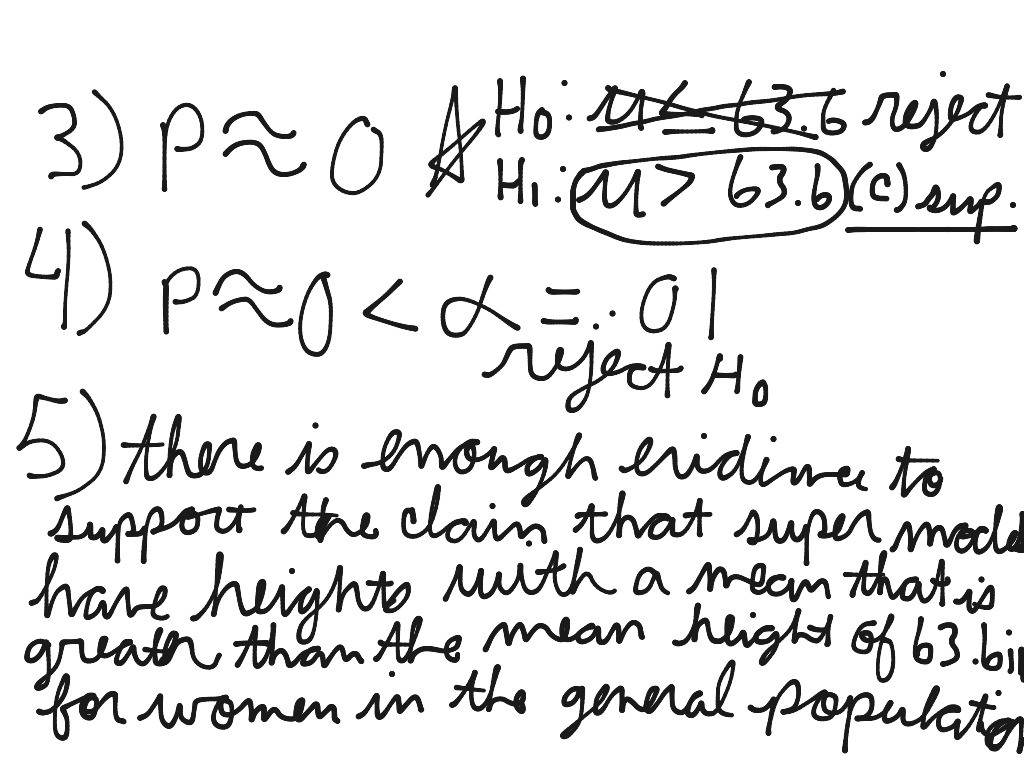 3) P ≈ 0 H₀: μ ≤ 63.6 reject
H₁: μ > 63.6 (c) sup.
4) P ≈ 0 < α = .01
reject H₀
5) there is enough evidence to
support the claim that super model
have heights with a mean that is
greater than the mean height of 63.6in
for women in the general population